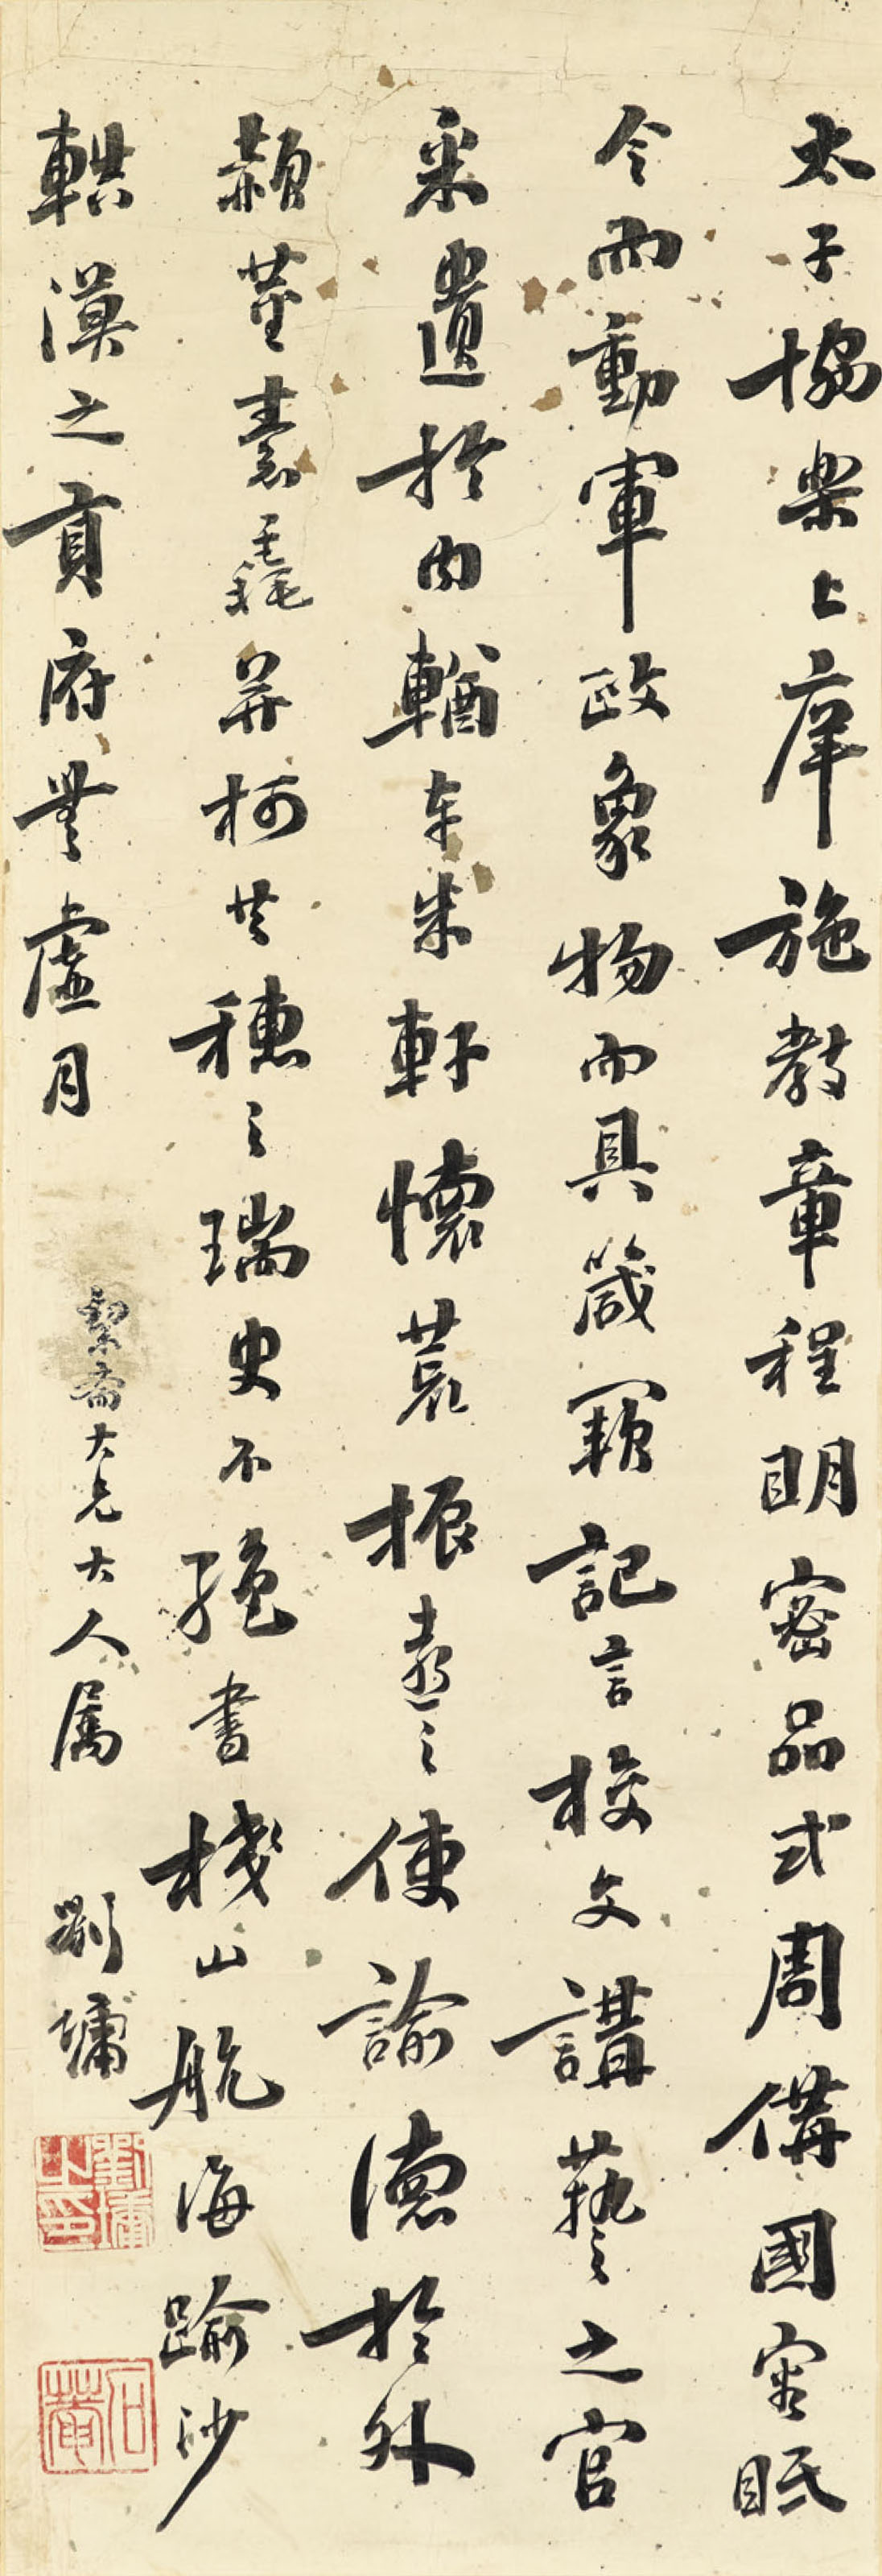 太子協樂上庠施教章程明密品式周備國容眡
令而動軍政象物而具箴闕記言校文講藝之官
采遺於內輶車朱軒懷荒振遠之使諭德於外
赬莖素毳并柯共穗之瑞史不絕書棧山航海踰沙
軼漠之貢府無虛月
絜齋大兄大人属 劉墉
劉墉之印
石菴